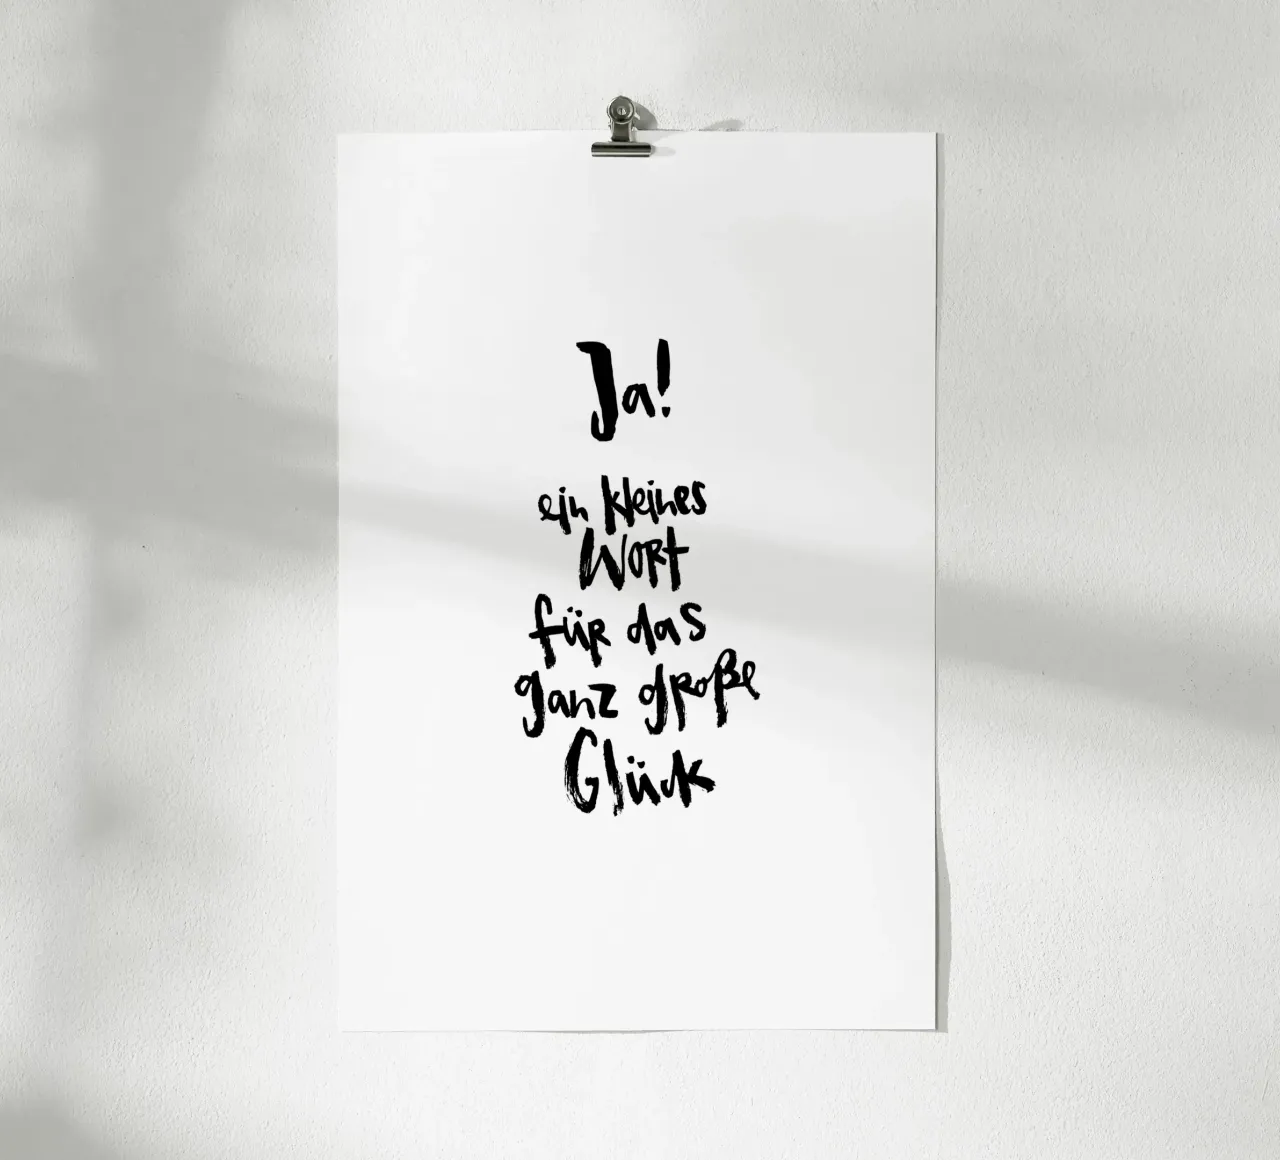 Ja!
ein kleines
Wort
für das
ganz große
Glück